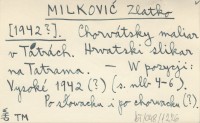 MILKOVIĆ Zlatko
[1942?]. Chorvátsky maliar
v Tatrách. Hrvatski slikar
na Tatrama. — W pozycji:
Vysoké 1942 (?) (s. nlb 4-6).
Po słowacku i po chorwacku (?).
TM